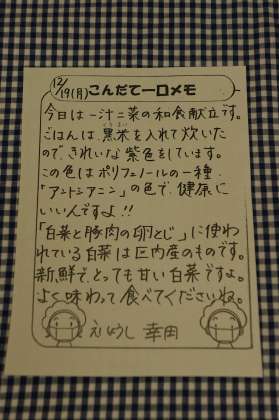 12/19(月) こんだて一口メモ
今日は一汁二菜の和食献立です。
ごはんは黒米を入れて炊いた
ので、きれいな紫色をしています。
この色はポリフェノールの一種、
「アントシアニン」の色で、健康に
いいんですよ!!
「白菜と豚肉の卵とじ」に使わ
れている白菜は区内産のものです。
新鮮で、とっても甘い白菜ですよ。
よく味わって食べてくださいね。
えいようし 幸田